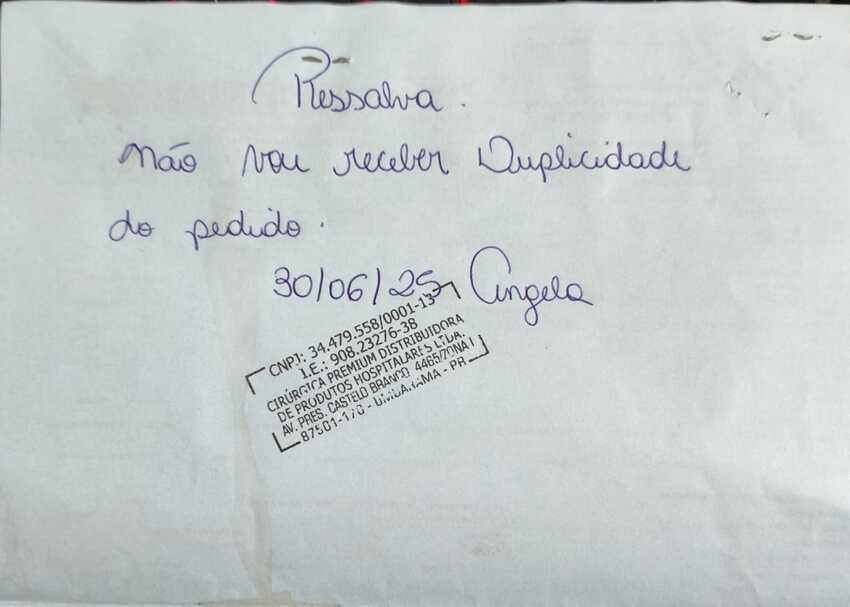 Ressalva.
Não vou receber Duplicidade
do pedido.
30/06/25 Angela
CNPJ: 34.479.558/0001-13
I.E.: 908.23276-38
CIRÚRGICA PREMIUM DISTRIBUIDORA
DE PRODUTOS HOSPITALARES LTDA.
AV. PRES. CASTELO BRANCO, 4465/ZONA I
87501-170 - UMUARAMA - PR